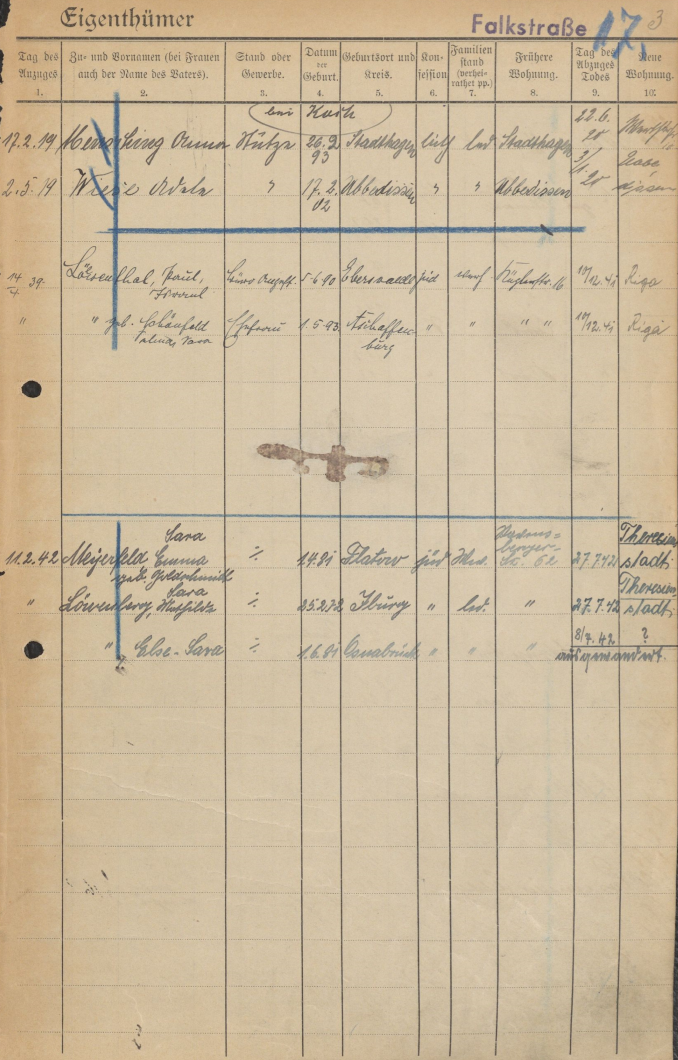 Eigenthümer Falkstraße 17. 3
Tag des Anzuges 1.
Zu- und Vornamen (bei Frauen auch der Name des Vaters). 2.
Stand oder Gewerbe. 3.
Datum der Geburt. 4.
Geburtsort und Kreis. 5.
Konfession 6.
Familienstand (verheirathet pp.) 7.
Frühere Wohnung. 8.
Tag des Abzuges Todes 9.
Neue Wohnung. 10.
bei Koch
17.2.19 Mensching Anna Stütze 26.9.93 Stadthagen luth led Stadthagen 22.6.20
2.5.19 Wiese Adele " 17.2.02 Ubbedissen " " Ubbedissen 3/1.20
14/4 39. Löwenthal, Paul, Israel Büro Angest. 5.6.90 Eberswalde jüd verh 16 10/12.41 Riga
" " geb. Schönfeld Sara Ehefrau 1.5.93. Aschaffenburg " " " " 10/12.41 Riga
Sara
11.2.42 Meyerfeld Emma ./. 1.4.81 Flatow jüd Ww. Ravensberger- Str. 62 27.7.42 Theresienstadt
geb. Goldschmidt
Sara
" Löwenberg, Mathilde ./. 25.2.72 Iburg " led. " 27.7.42 Theresienstadt
" Else-Sara ./. 1.6.81 Osnabrück " " " 8/7.42 ?
ausgewandert.